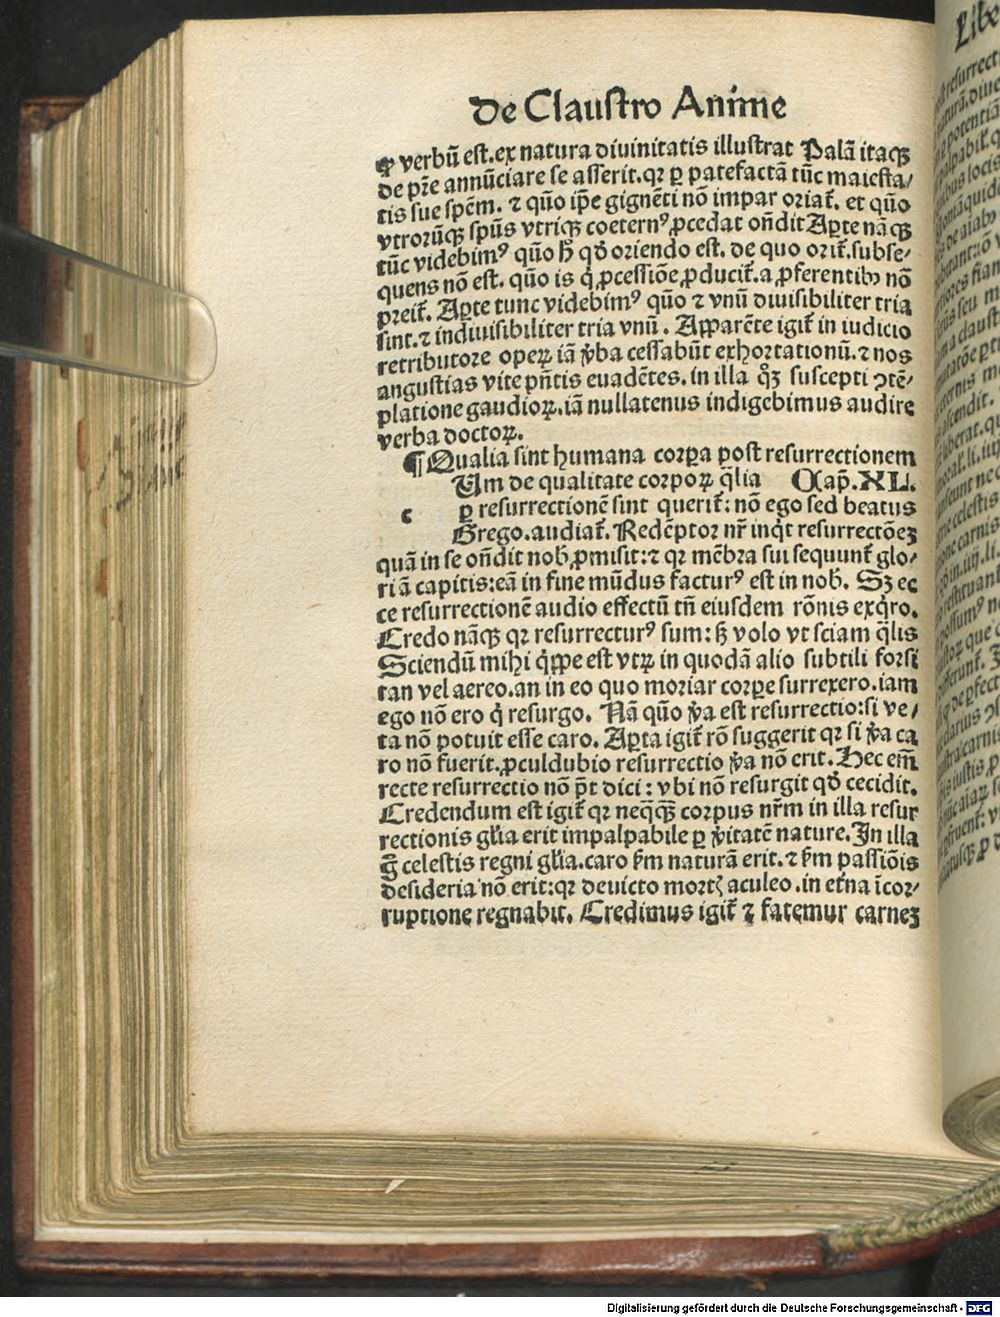 De Claustro Anime
ꝙ verbū est.ex natura diuinitatis illustrat Palā itaqꝫ
de pr̄e annūciare se asserit.qꝛ ꝑ patefactā tūc maiesta/
tis sue spēm. ⁊ quō ip̄e gignēti nō impar oriat̄. et quō
vtrorūqꝫ spūs vtriqꝫ coeternꝰ ꝓcedat on̄dit Aꝑte nāqꝫ
tūc videbimꝰ quō h̄ qd̄ oriendo est. de quo orit̄.subse/
quens nō est. quō is q̇ ꝓcessiōe ꝓducit̄.a ꝓferentibꝰ nō
preit̄. Aꝑte tunc videbimꝰ quō ⁊ vnū diuisibiliter tria
sint.⁊ indiuisibiliter tria vnū. Apparēte igit̄ in iudicio
retributore operꝝ iā v̄ba cessabūt exhortationū.⁊ nos
angustias vite pn̄tis euadētes.in illa qꝫ suscepti ↄtē/
platione gaudioꝝ.iā nullatenus indigebimus audire
verba doctoꝝ.
¶Qualia sint humana corpa post resurrectionem
Um de qualitate corpoꝝ q̄lia Cap̄.XL.
c ꝑ resurrectionē sint querit̄: nō ego sed beatus
Grego.audiat̄. Redēptor nr̄ inqͥt resurrectōeꝫ
quā in se on̄dit nob̄ ꝓmisit:⁊ qꝛ mēbra sui sequunt̄ glo/
riā capitis:eā in fine mūdus facturꝰ est in nob̄. Sꝫ ec
ce resurrectionē audio effectū tn̄ eiusdem rōnis exqͥro.
Credo nāqꝫ qꝛ resurrecturꝰ sum: sꝫ volo vt sciam q̄lis
Sciendū mihi qͥppe est vtꝝ in quodā alio subtili forsi
tan vel aereo.an in eo quo moriar corpe surrexero.iam
ego nō ero qͥ resurgo. Nā quō v̄a est resurrectio:si ve/
ra nō potuit esse caro. Aꝑta igit̄ rō suggerit qꝛ si v̄a ca
ro nō fuerit.ꝓculdubio resurrectio v̄a nō erit. Hec em̄
recte resurrectio nō pt̄ dici: vbi nō resurgit qd̄ cecidit.
Credendum est igit̄ qꝛ neqͣqꝫ corpus nr̄m in illa resur
rectionis gl̄ia erit impalpabile ꝑ v̄itatē nature.In illa
g̊ celestis regni gl̄ia.caro ẜm naturā erit.⁊ ẜm passiōis
desideria nō erit:qꝛ deuicto mortꝭ aculeo.in et̄na īcor/
ruptione regnabit. Credimus igit̄ ⁊ fatemur carneꝫ
Digitalisierung gefördert durch die Deutsche Forschungsgemeinschaft - DFG